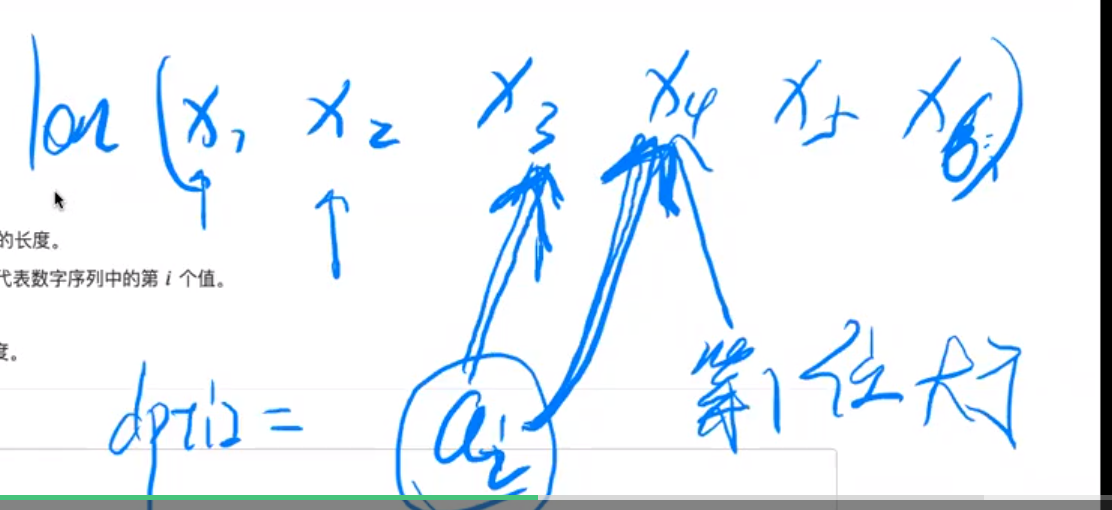 len (x1 x2 x3 x4 x5 x6)
的长度。
代表数字序列中的第 i 个值。
度。
dp[i] = ai 第1位大于